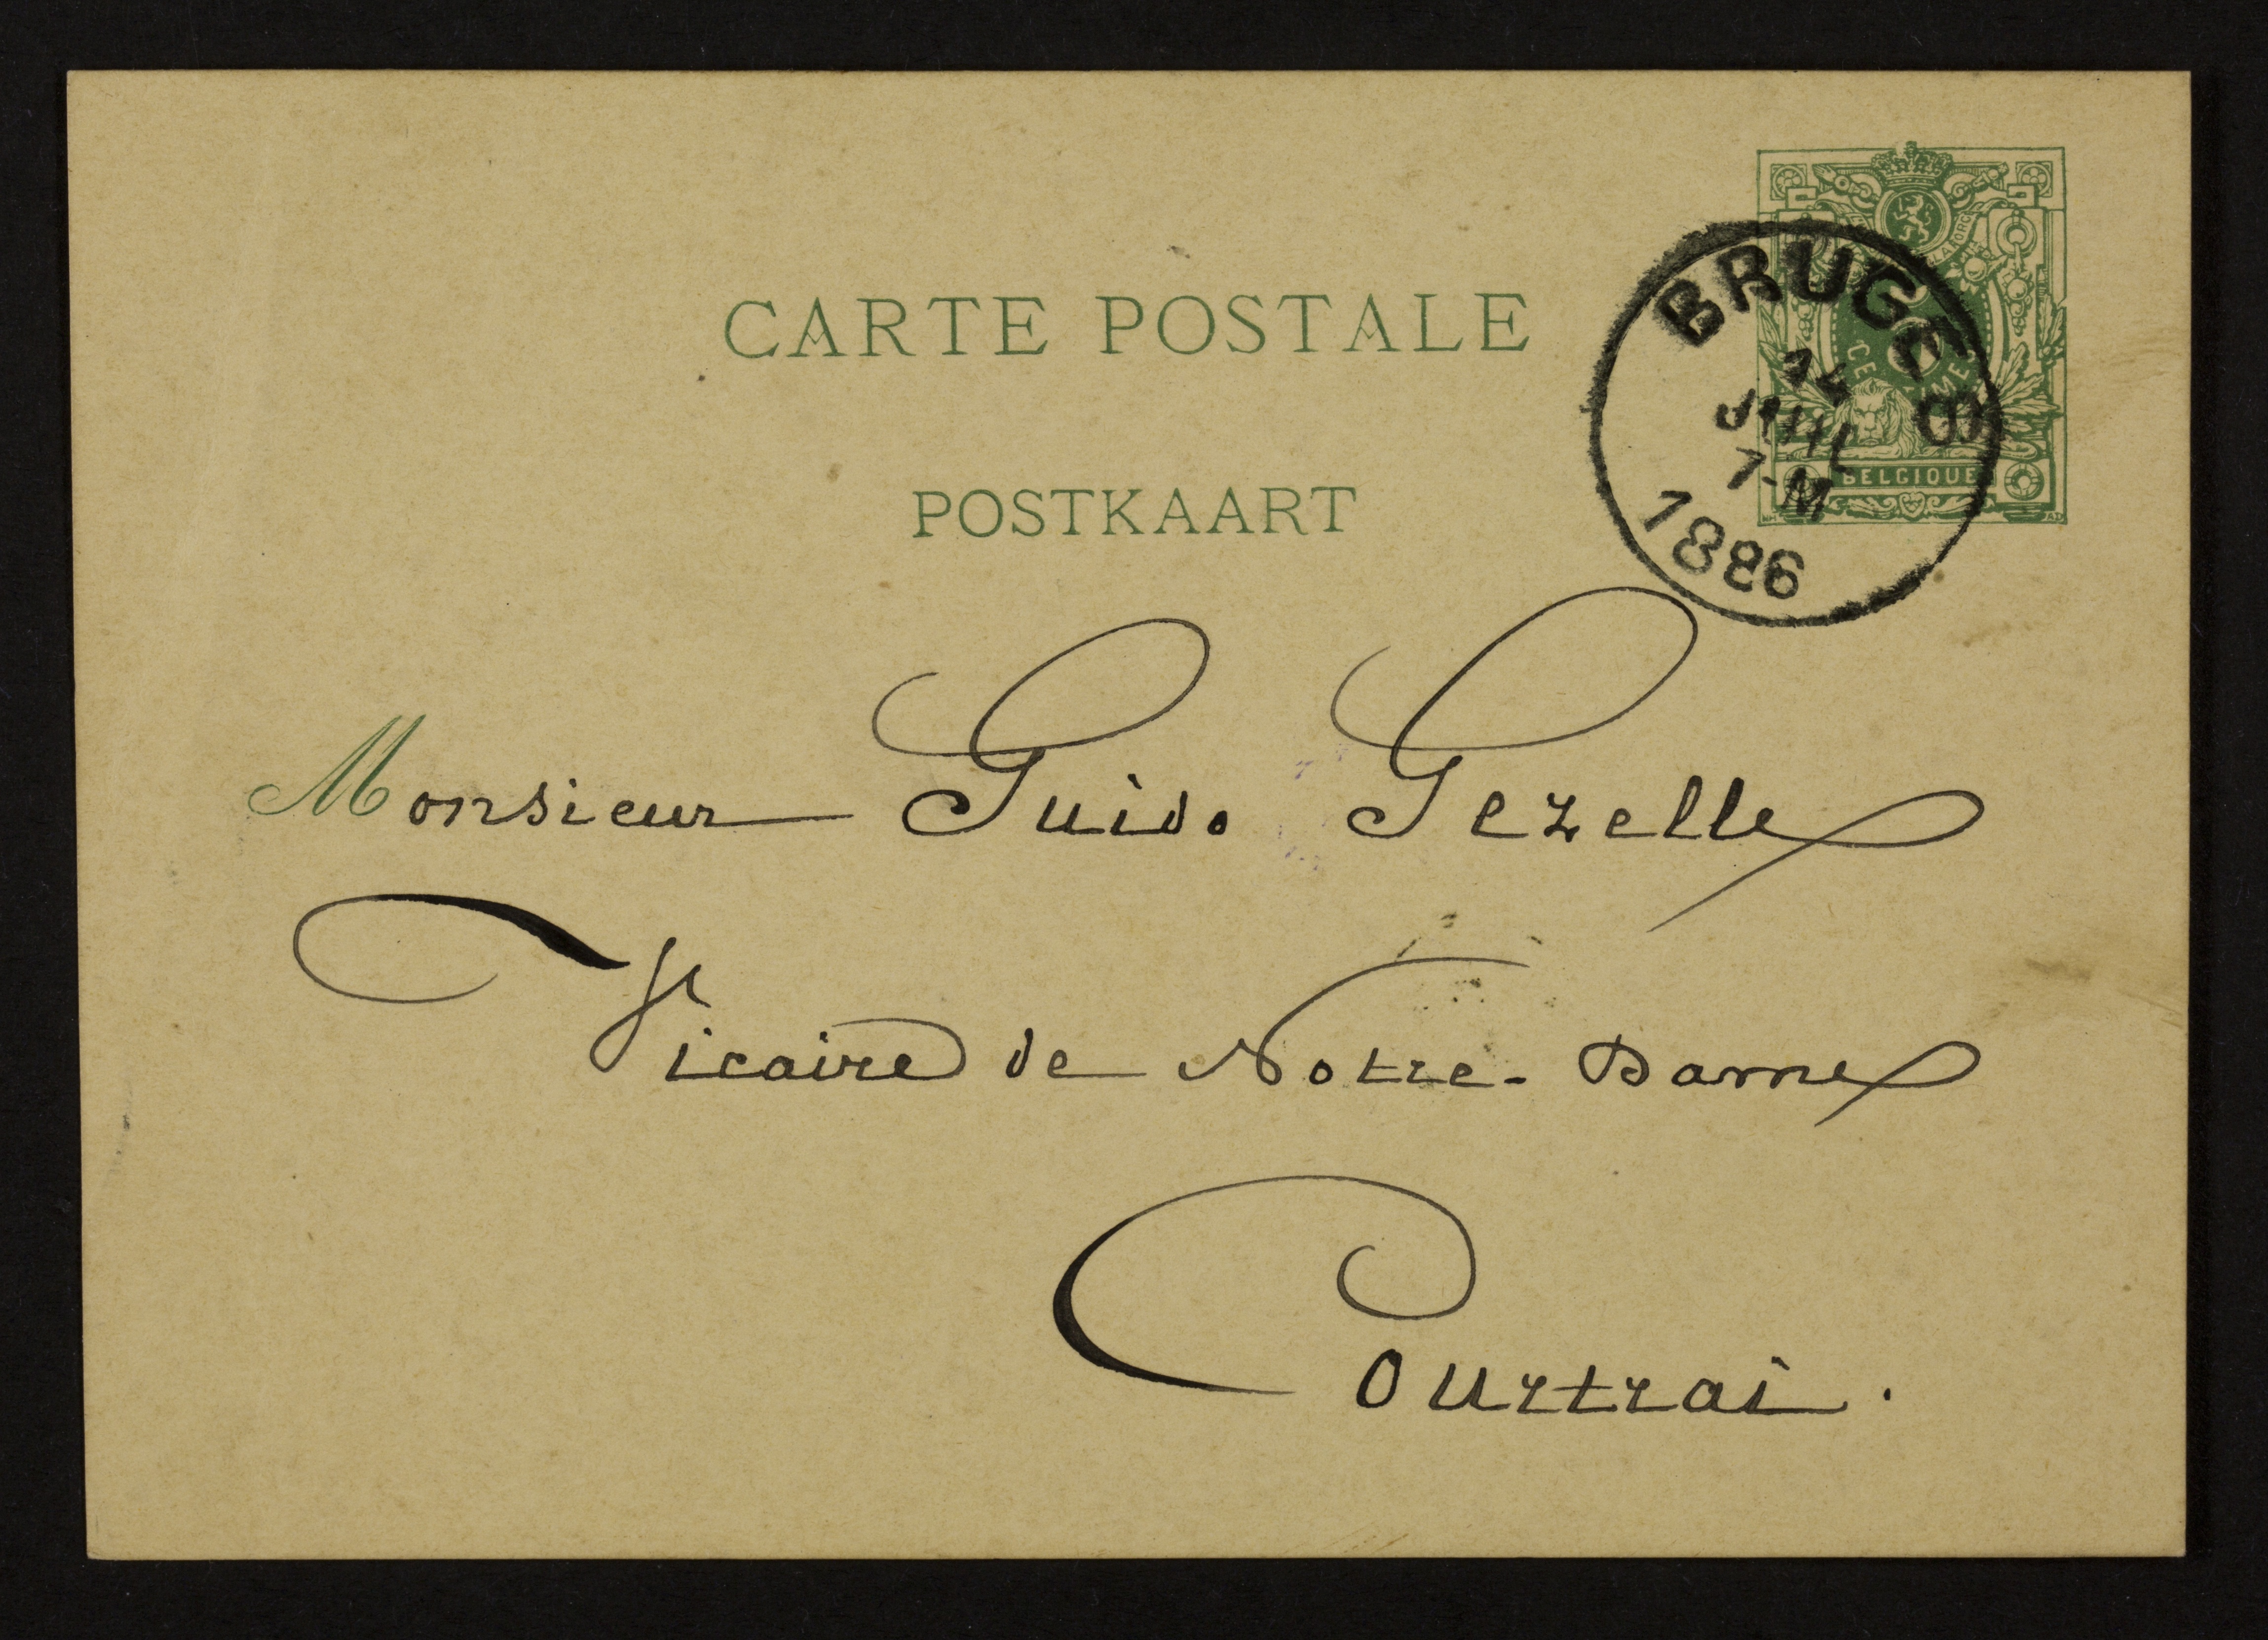 CARTE POSTALE
POSTKAART
BRUGES
7-M
1886
BELGIQUE
Monsieur Guido Gezelle
Vicaire de Notre-Dame
Courtrai.